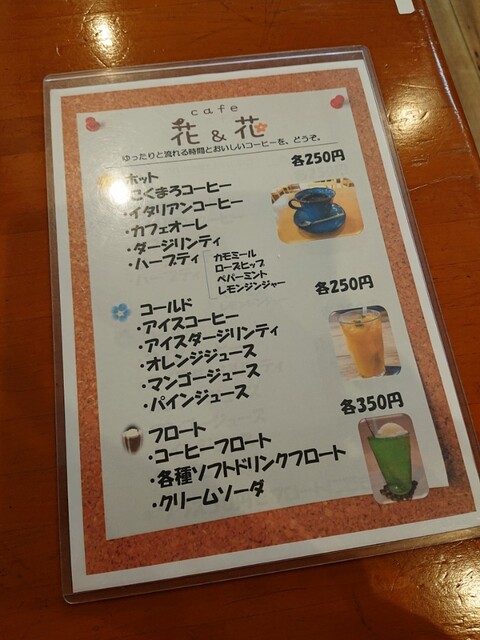 cafe
花 & 花
ゆったりと流れる時間とおいしいコーヒーを、どうぞ。
ホット 各250円
・こくまろコーヒー
・イタリアンコーヒー
・カフェオーレ
・ダージリンティ
・ハーブティ
カモミール
ローズヒップ
ペパーミント
レモンジンジャー
コールド 各250円
・アイスコーヒー
・アイスダージリンティ
・オレンジジュース
・マンゴージュース
・パインジュース
フロート 各350円
・コーヒーフロート
・各種ソフトドリンクフロート
・クリームソーダ